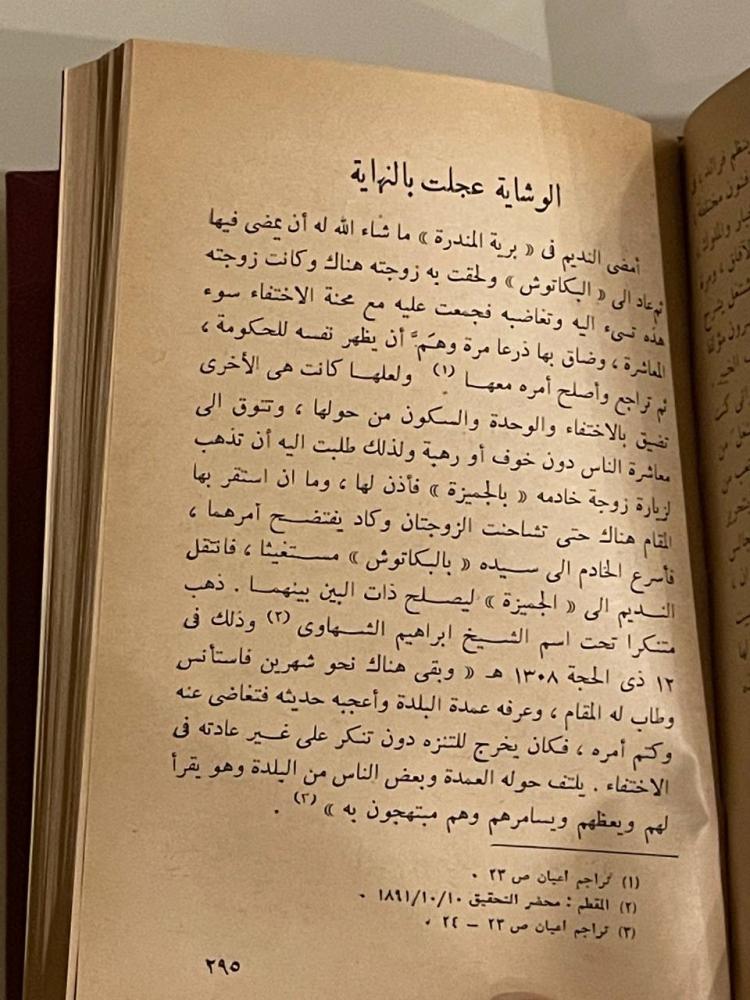 الوشاية عجلت بالنهاية
أمضى النديم فى « برية المندرة » ما شاء الله له أن يمضى فيها
ثم عاد الى « البكاتوش » ولحقت به زوجته هناك وكانت زوجته
هذه تسىء اليه وتغاضبه فجمعت عليه مع محنة الاختفاء سوء
المعاشرة ، وضاق بها ذرعا مرة وهَمَّ أن يظهر نفسه للحكومة ،
ثم تراجع وأصلح أمره معها (١) ولعلها كانت هى الأخرى
تضيق بالاختفاء والوحدة والسكون من حولها ، وتتوق الى
معاشرة الناس دون خوف أو رهبة ولذلك طلبت اليه أن تذهب
لزيارة زوجة خادمه « بالجميزة » فأذن لها ، وما ان استقر بها
المقام هناك حتى تشاحنت الزوجتان وكاد يفتضح أمرهما ،
فأسرع الخادم الى سيده « بالبكاتوش » مستغيثا ، فانتقل
النديم الى « الجميزة » ليصلح ذات البين بينهما . ذهب
متنكرا تحت اسم الشيخ ابراهيم الشهاوى (٢) وذلك فى
١٢ ذى الحجة ١٣٠٨ هـ « وبقى هناك نحو شهرين فاستأنس
وطاب له المقام ، وعرفه عمدة البلدة وأعجبه حديثه فتغاضى عنه
وكتم أمره ، فكان يخرج للتنزه دون تنكر على غير عادته فى
الاختفاء . يلتف حوله العمدة وبعض الناس من البلدة وهو يقرأ
لهم ويعظهم ويسامرهم وهم مبتهجون به » (٣) .
(١) تراجم أعيان ص ٢٣ .
(٢) المقطم : محضر التحقيق ١٨٩١/١٠/١٠ .
(٣) تراجم أعيان ص ٢٣ – ٢٤ .
٢٩٥